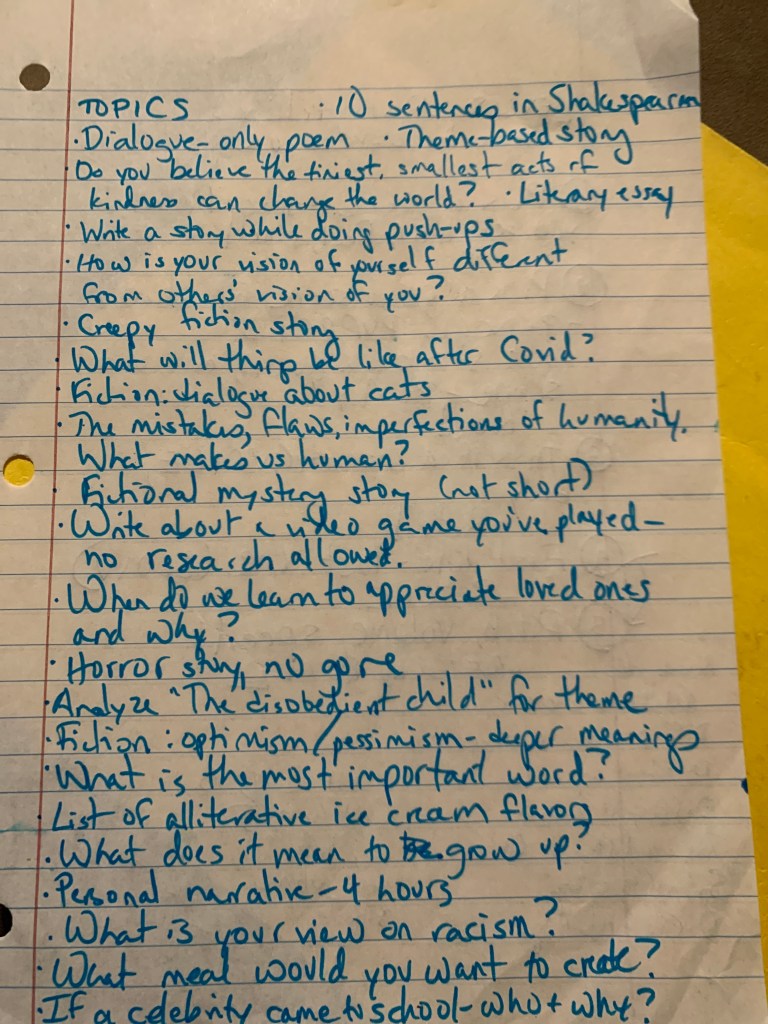 TOPICS · 10 sentences in Shakespearean
· Dialogue-only poem · Theme-based story
· Do you believe the tiniest, smallest acts of
kindness can change the world? · Literary essay
· Write a story while doing push-ups
· How is your vision of yourself different
from others' vision of you?
· Creepy fiction story
· What will things be like after Covid?
· Fiction: dialogue about cats
· The mistakes, flaws, imperfections of humanity.
What makes us human?
· Fictional mystery story (not short)
· Write about a video game you've played-
no research allowed.
· When do we learn to appreciate loved ones
and why?
· Horror story, no gore
· Analyze "The disobedient child" for theme
· Fiction: optimism/pessimism- deeper meanings
· What is the most important word?
· List of alliterative ice cream flavors
· What does it mean to grow up?
· Personal narrative-4 hours
· What is your view on racism?
· What meal would you want to create?
· If a celebrity came to school-who + why?